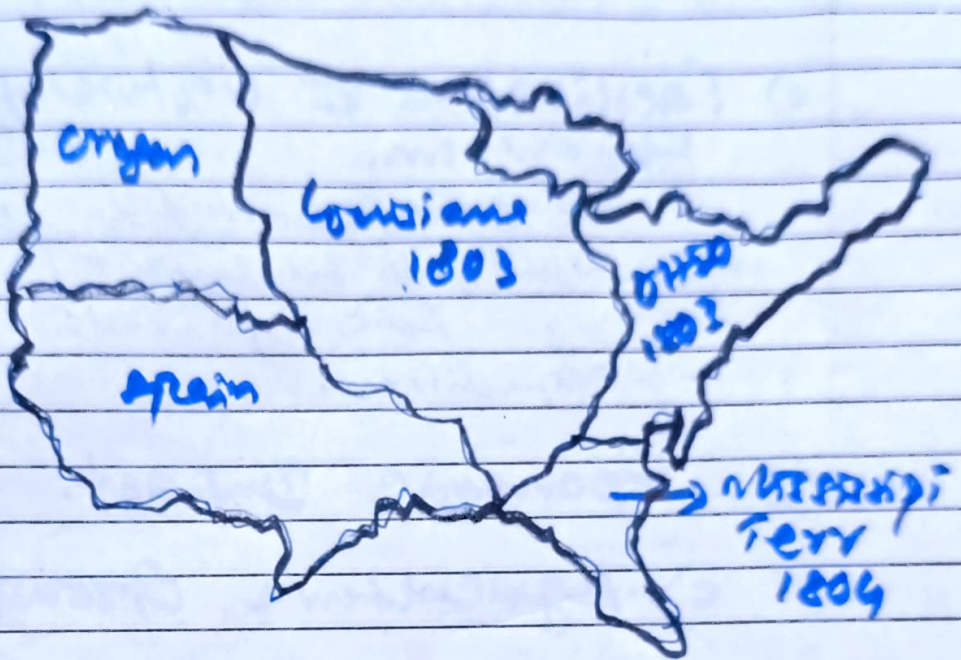 Oregon
Louisiana
1803
OHIO
1803
Spain
Mississipi
Terr
1804